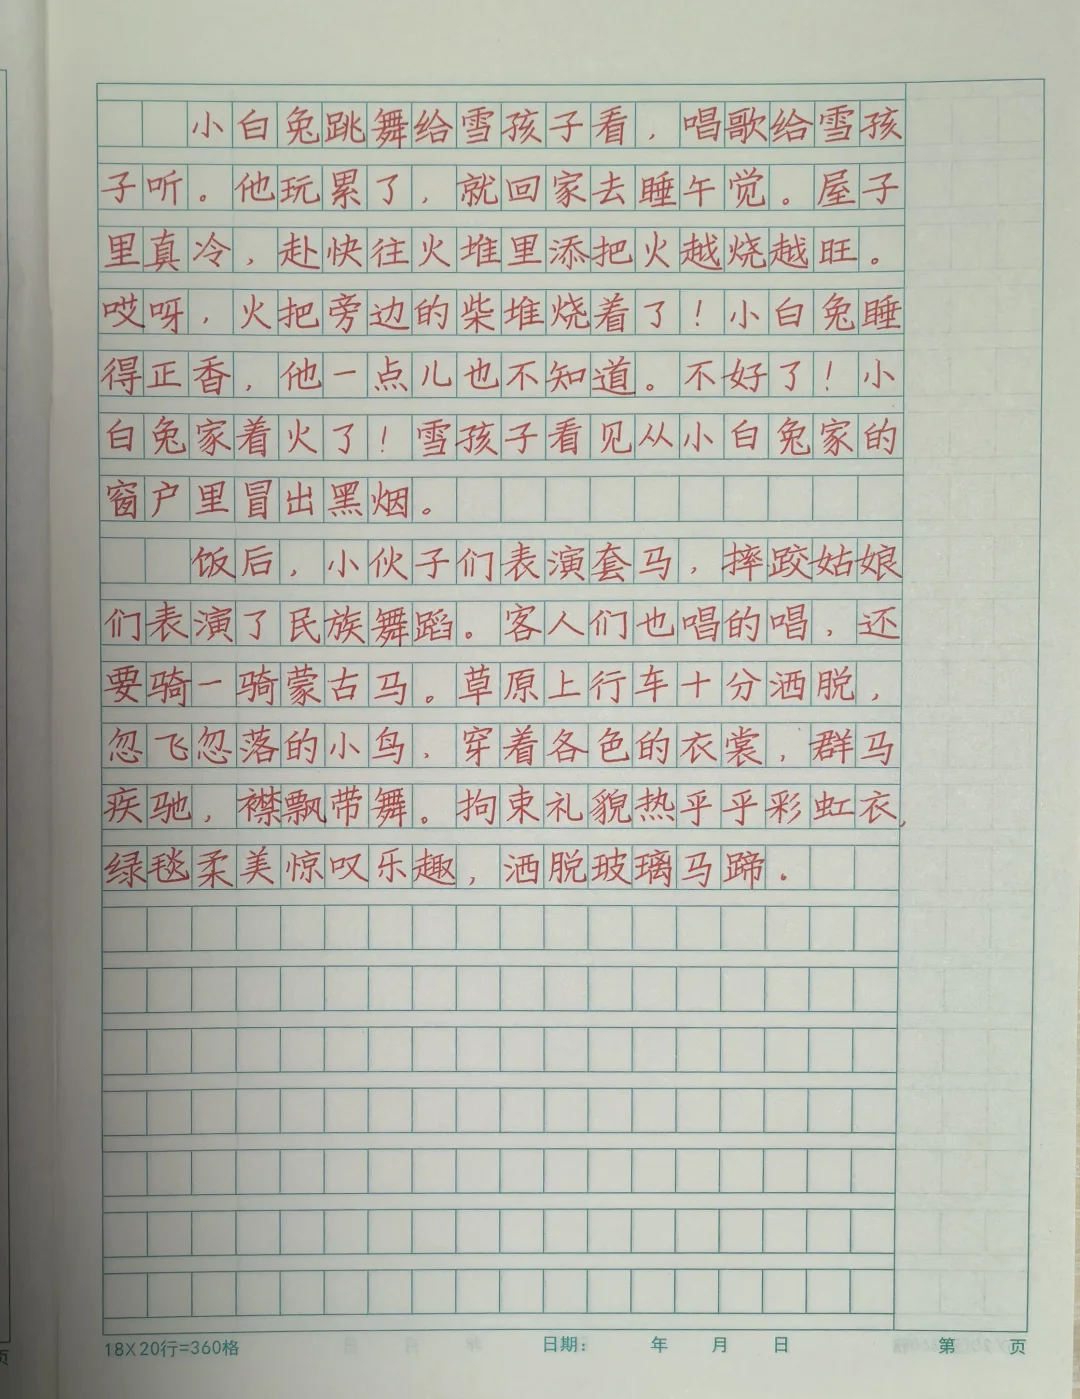 小白兔跳舞给雪孩子看，唱歌给雪孩
子听。他玩累了，就回家去睡午觉。屋子
里真冷，赴快往火堆里添把火越烧越旺。
哎呀，火把旁边的柴堆烧着了！小白兔睡
得正香，他一点儿也不知道。不好了！小
白兔家着火了！雪孩子看见从小白兔家的
窗户里冒出黑烟。
饭后，小伙子们表演套马，摔跤姑娘
们表演了民族舞蹈。客人们也唱的唱，还
要骑一骑蒙古马。草原上行车十分洒脱，
忽飞忽落的小鸟，穿着各色的衣裳，群马
疾驰，襟飘带舞。拘束礼貌热乎乎彩虹衣，
绿毯柔美惊叹乐趣，洒脱玻璃马蹄．
18X20行=360格
日期： 年 月 日
第 页